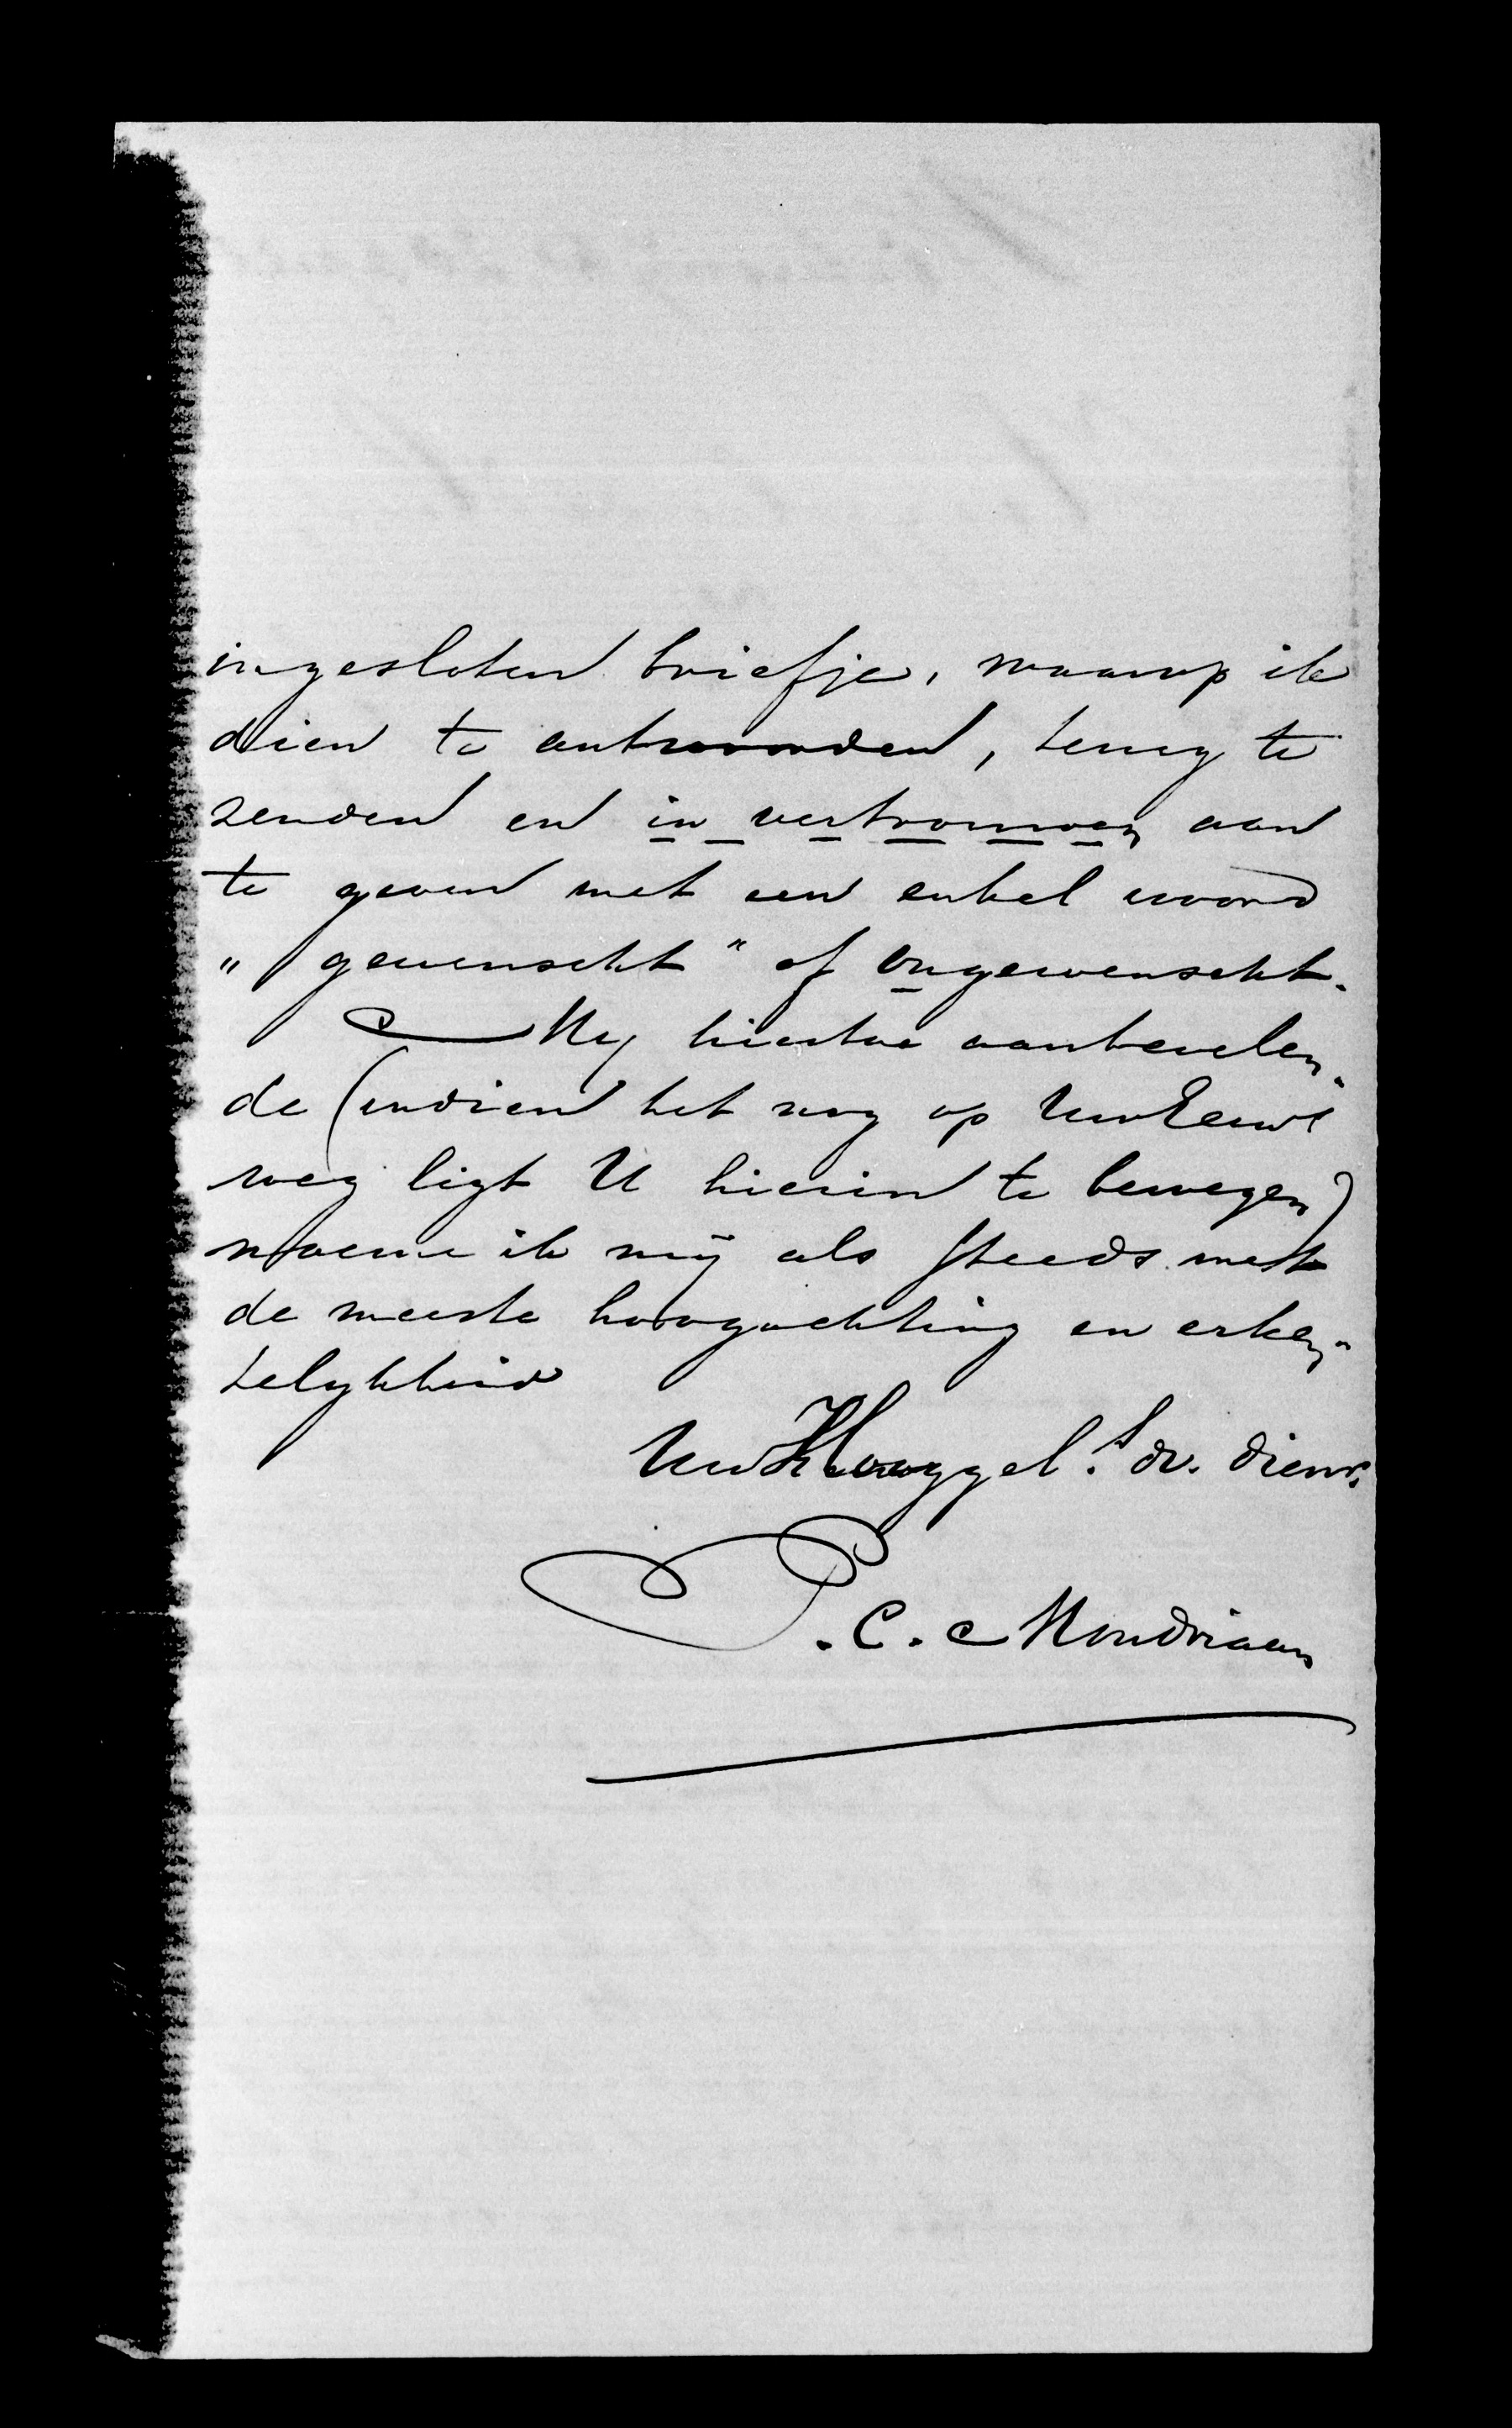 ingesloten briefje, waarop ik
dien te antwoorden, terug te
zenden en in vertrouwen aan
te geven met een enkel woord
„gewenscht" of ongewenscht.
My hiertoe aanbevelen-
de (indien het nog op UwEeuws
weg ligt U hierin te bewegen)
noeme ik mij als steeds met
de meeste hoogachting en erken-
telykheid
UwHooggel. dv. dienr.
P. C. Mondriaan